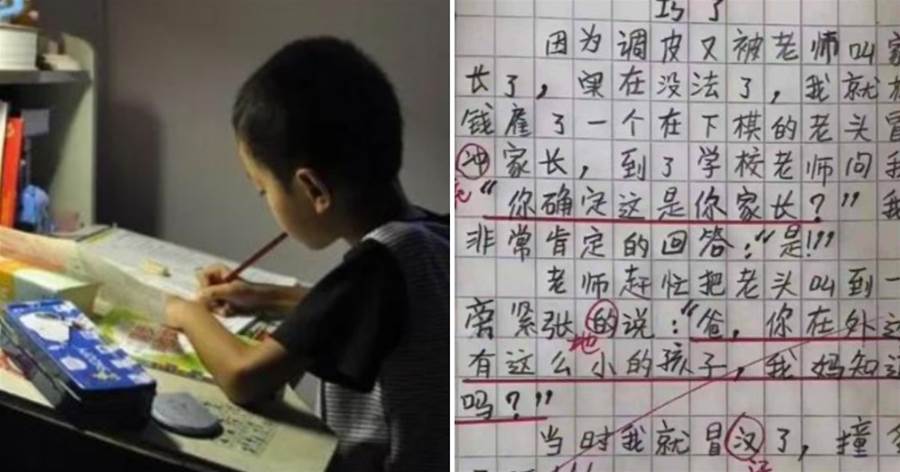 巧了
因为调皮又被老师叫家
长了，实在没法了，我就
钱雇了一个在下棋的老头冒
冲家长，到了学校老师问我
“你确定这是你家长？”我
非常肯定的回答：“是！”
老师赶忙把老头叫到一
旁紧张的说：“爸，你在外边
地
有这么小的孩子，我妈知道
吗？”
当时我就冒汉了，撞